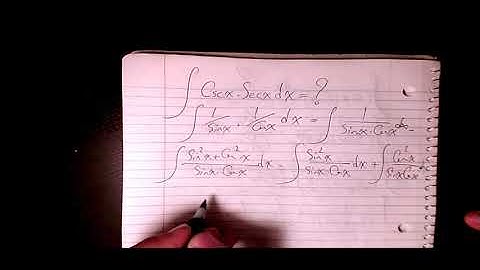 ∫ Cscx · Secx dx = ?
∫ 1/Sinx · 1/Cosx dx = ∫ 1/(Sinx · Cosx) dx
∫ (Sin²x + Cos²x)/(Sinx · Cosx) dx = ∫ Sin²x/(Sinx · Cosx) dx + ∫ Cos²x/(SinxCosx) dx